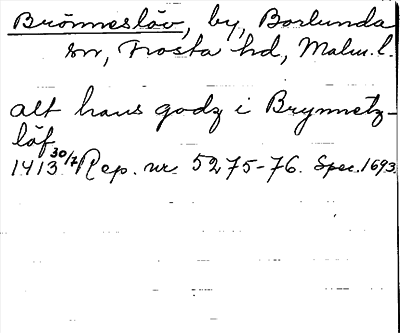 Brönneslöv, by, Borlunda
sn, Frosta hd, Malm. l.
alt hans godz i Brynnetz-
löf
1413 30/7 Rep. nr. 5275-76. Spec. 1693.